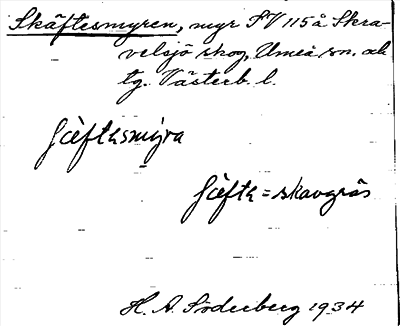 Skäftesmyren, myr SV 115 å Skra-
velsjö skog, Umeå sn. och
tg. Västerb. l.
ʃäftasmýra
ʃäfta = skavgräs
H. A. Söderberg 1934